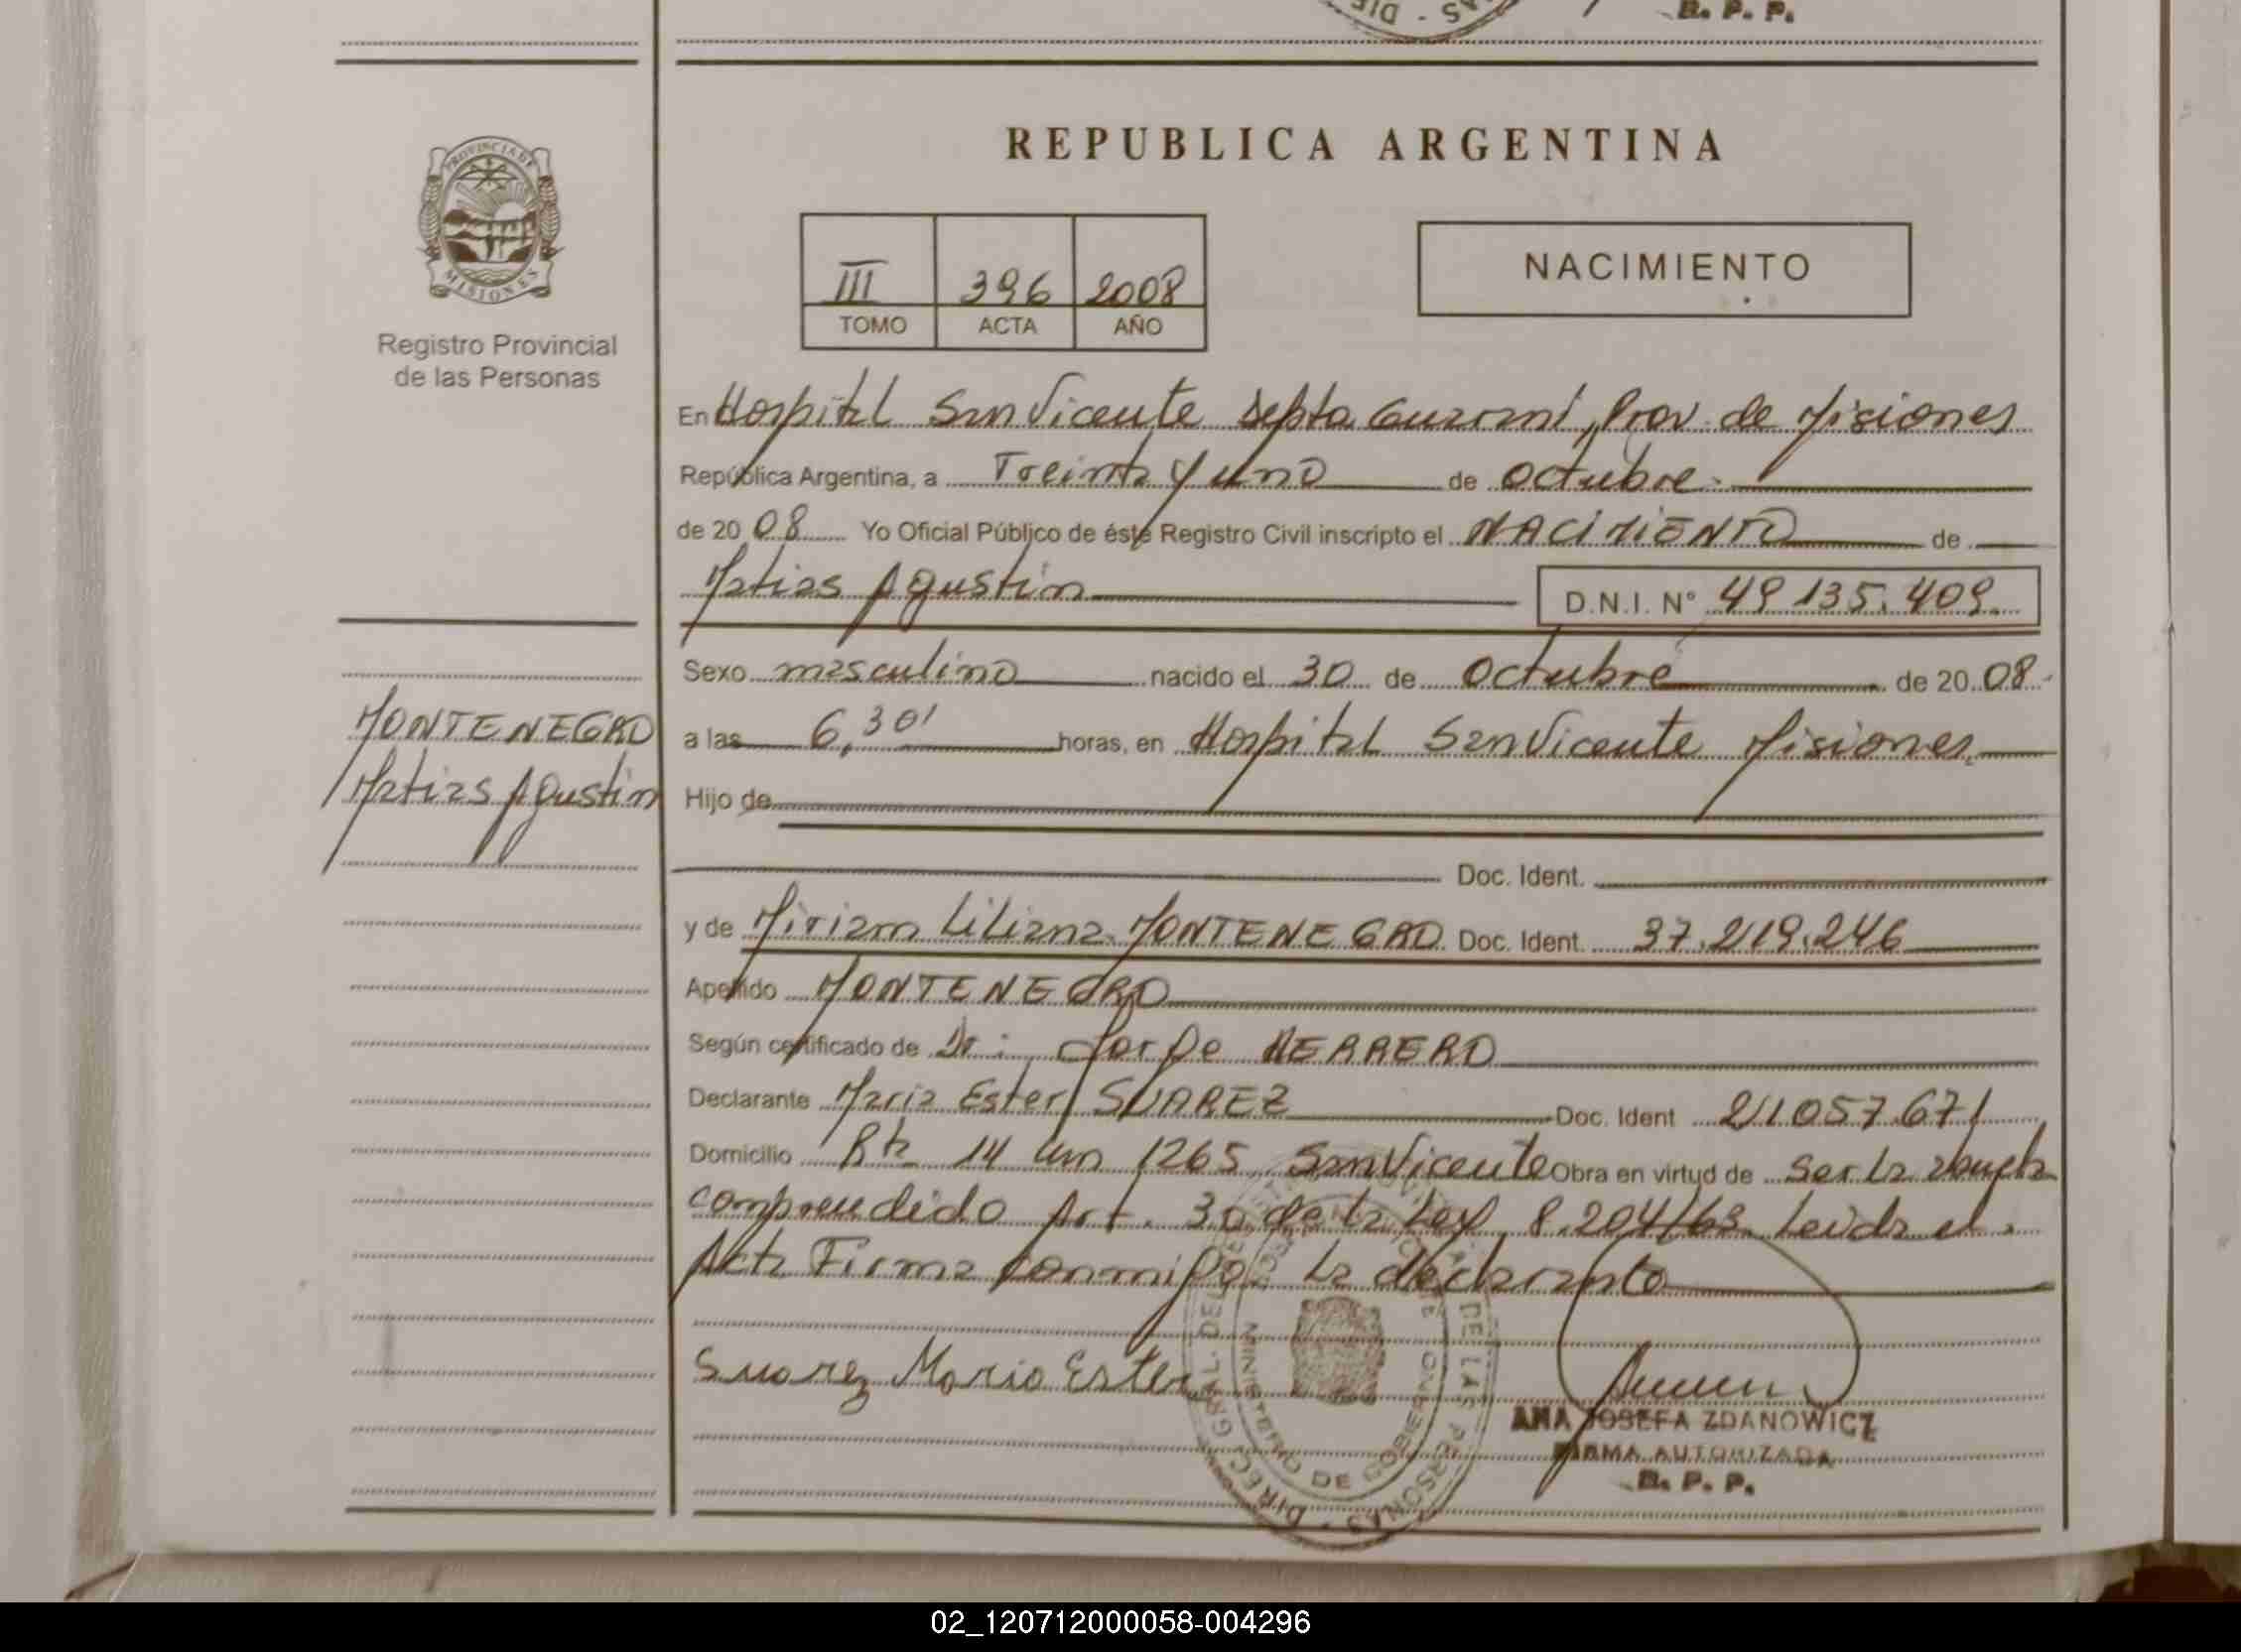 B. P. P.
REPUBLICA ARGENTINA
PROVINCIA DE
MISIONES
Registro Provincial
de las Personas
III 396 2008
TOMO ACTA AÑO
NACIMIENTO
En Hospital San Vicente Depto Guarani, Prov. de Misiones
República Argentina, a Treinta y uno de Octubre.
de 20 08 Yo Oficial Público de éste Registro Civil inscripto el NACIMIENTO de
Matias Agustin D.N.I. N° 49.135.409.
Sexo masculino nacido el 30 de Octubre de 20 08
MONTENEGRO
Matias Agustin
a las 6,30' horas, en Hospital San Vicente Misiones.
Hijo de
Doc. Ident.
y de Miriam Liliana MONTENEGRO Doc. Ident. 37.219.246
Apellido MONTENEGRO
Según certificado de Dr: Jorge HERRERO
Declarante Maria Ester SUAREZ Doc. Ident 21.057.671
Domicilio Rta 14 km 1265 San Vicente Obra en virtud de ser la abuela
comprendido Art. 30 de la Ley 8.204/63. Leida el
Acta Firma conmigo la declarante
Suarez Maria Ester
DIREC. GRAL. DEL DE LAS PERSONAS
MINISTERIO DE GOBIERNO
ANA JOSEFA ZDANOWICZ
FIRMA AUTORIZADA
R. P. P.
02_120712000058-004296